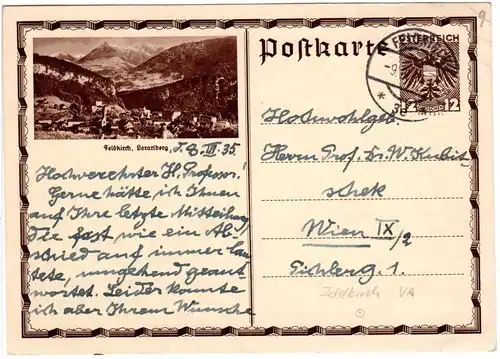 Postkarte
ÖSTERREICH
12 12
Feldkirch, Vorarlberg
F. 8. III. 35.
Hochverehrter H. Professor!
Gerne hätte ich Ihnen
auf Ihre letzte Mitteilung,
die fast wie ein Ab-
schied auf immer lau-
tete, umgehend geant-
wortet. Leider konnte
ich aber Ihrem Wunsche
Hochwohlgeb.
Herrn Prof. Dr. W. Kubit-
schek
Wien IX/2
Pichlerg. 1.
Feldkirch VA
9